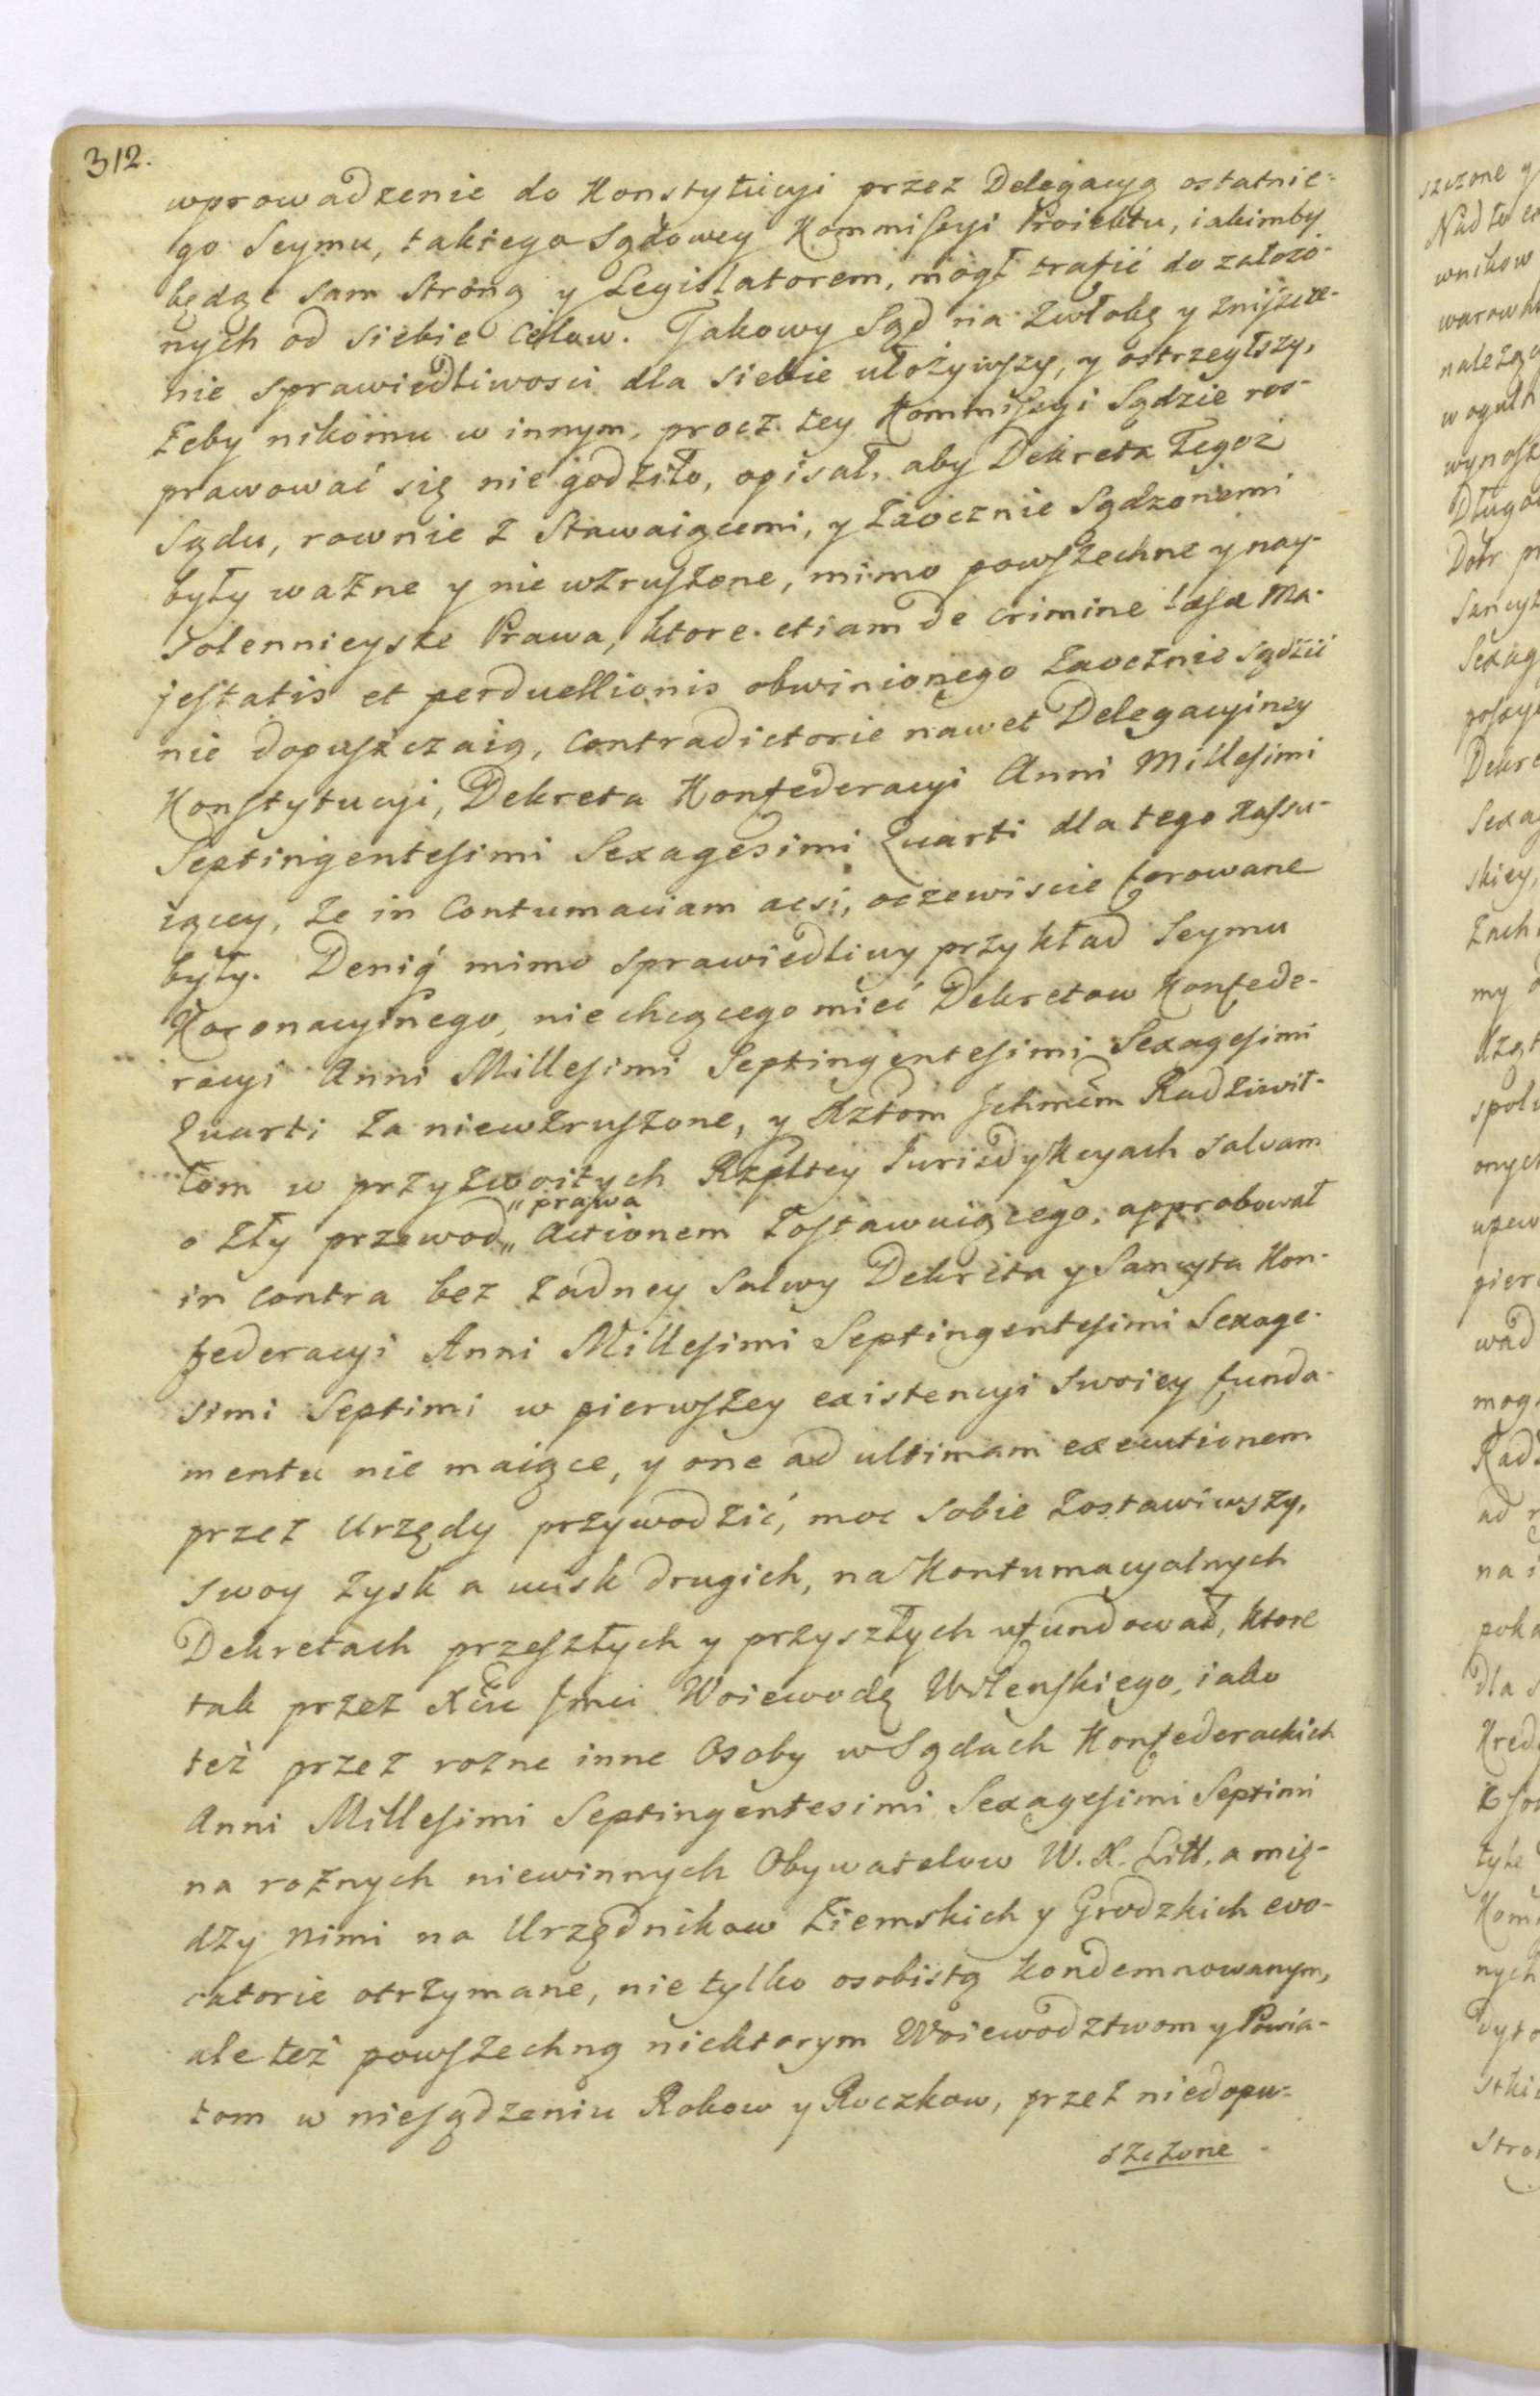 312.
wprowadzenie do Konstytucyi przez Delegacyą ostatnie=
go Seymu, takiego Sądowey Kommissyi Proiektu, iakimby
będąc sam Stroną y Legislatorem, mogł trafić do założo-
nych od siebie Celow. Takowy Sąd na zwłokę y zniszcze-
nie sprawiedliwosci dla siebie ułożywszy, y ostrzegłszy,
żeby nikomu w innym, procz tey Kommissyi Sądzie roz-
prawować się nie godziło, opisał, aby Dekreta tegoż
Sądu, rownie z Stawaiącemi, y zaocznie Sądzonemi
były ważne y nie wzruszone, mimo powszechne y nay-
solennieysze Prawa, ktore etiam de crimine læsæ Ma-
jestatis et perduellionis obwinionego zaocznie sądzić
nie dopuszczaią, contradictorie nawet Delegacyiney
Konstytucyi, Dekreta Konfederacyi Anni Millesimi
Septingentesimi Sexagesimi Quarti dla tego kassu-
iącey, że in Contumaciam acsi, oczewiscie ferowane
były. Denig mimo sprawiedliwy przykład Seymu
Koronacyinego, nie chcącego mieć Dekretow Konfede-
racyi Anni Millesimi Septingentesimi Sexagesimi
Quarti za niewzruszone, y Xztom Ichmcm Radziwił-
łom w przyzwoitych Rzpltey Iurisdykcyach salvam
"prawa
o zły przewod" Actionem zostawuiącego, approbował
in contra bez żadney Salwy Dekreta y Sancyta Kon-
federacyi Anni Millesimi Septingentesimi Sexage-
simi Septimi w pierwszey existencyi swoiey funda-
mentu nie maiące, y one ad ultimam executionem
przez Urzędy przywodzić, moc sobie zostawiwszy,
swoy zysk a ucisk drugich, na Kontumacyalnych
Dekretach przeszłych y przyszłych ufundował, ktore
tak przez Xcia Jmci Woiewodę Wilenskiego, iako
też przez rozne inne Osoby w Sądach Konfederackich
Anni Millesimi Septingentesimi Sexagesimi Septimi
na rożnych niewinnych Obywatelow W. X. Litt. a mię-
dzy nimi na Urzędnikow Ziemskich y Grodzkich evo-
catorie otrzymane, nie tylko osobistą kondemnowanym,
ale też powszechną niektorym Woiewodztwom y Powia-
tom w niesądzeniu Rokow y Roczkow, przez niedopu=
szczone
szczone
Nadto
wnikow
należą
Długo
Sexag
Dekre
skiey,
my
onych
pier
wad
mog
Radz
ad
na
dla
nych
Stro